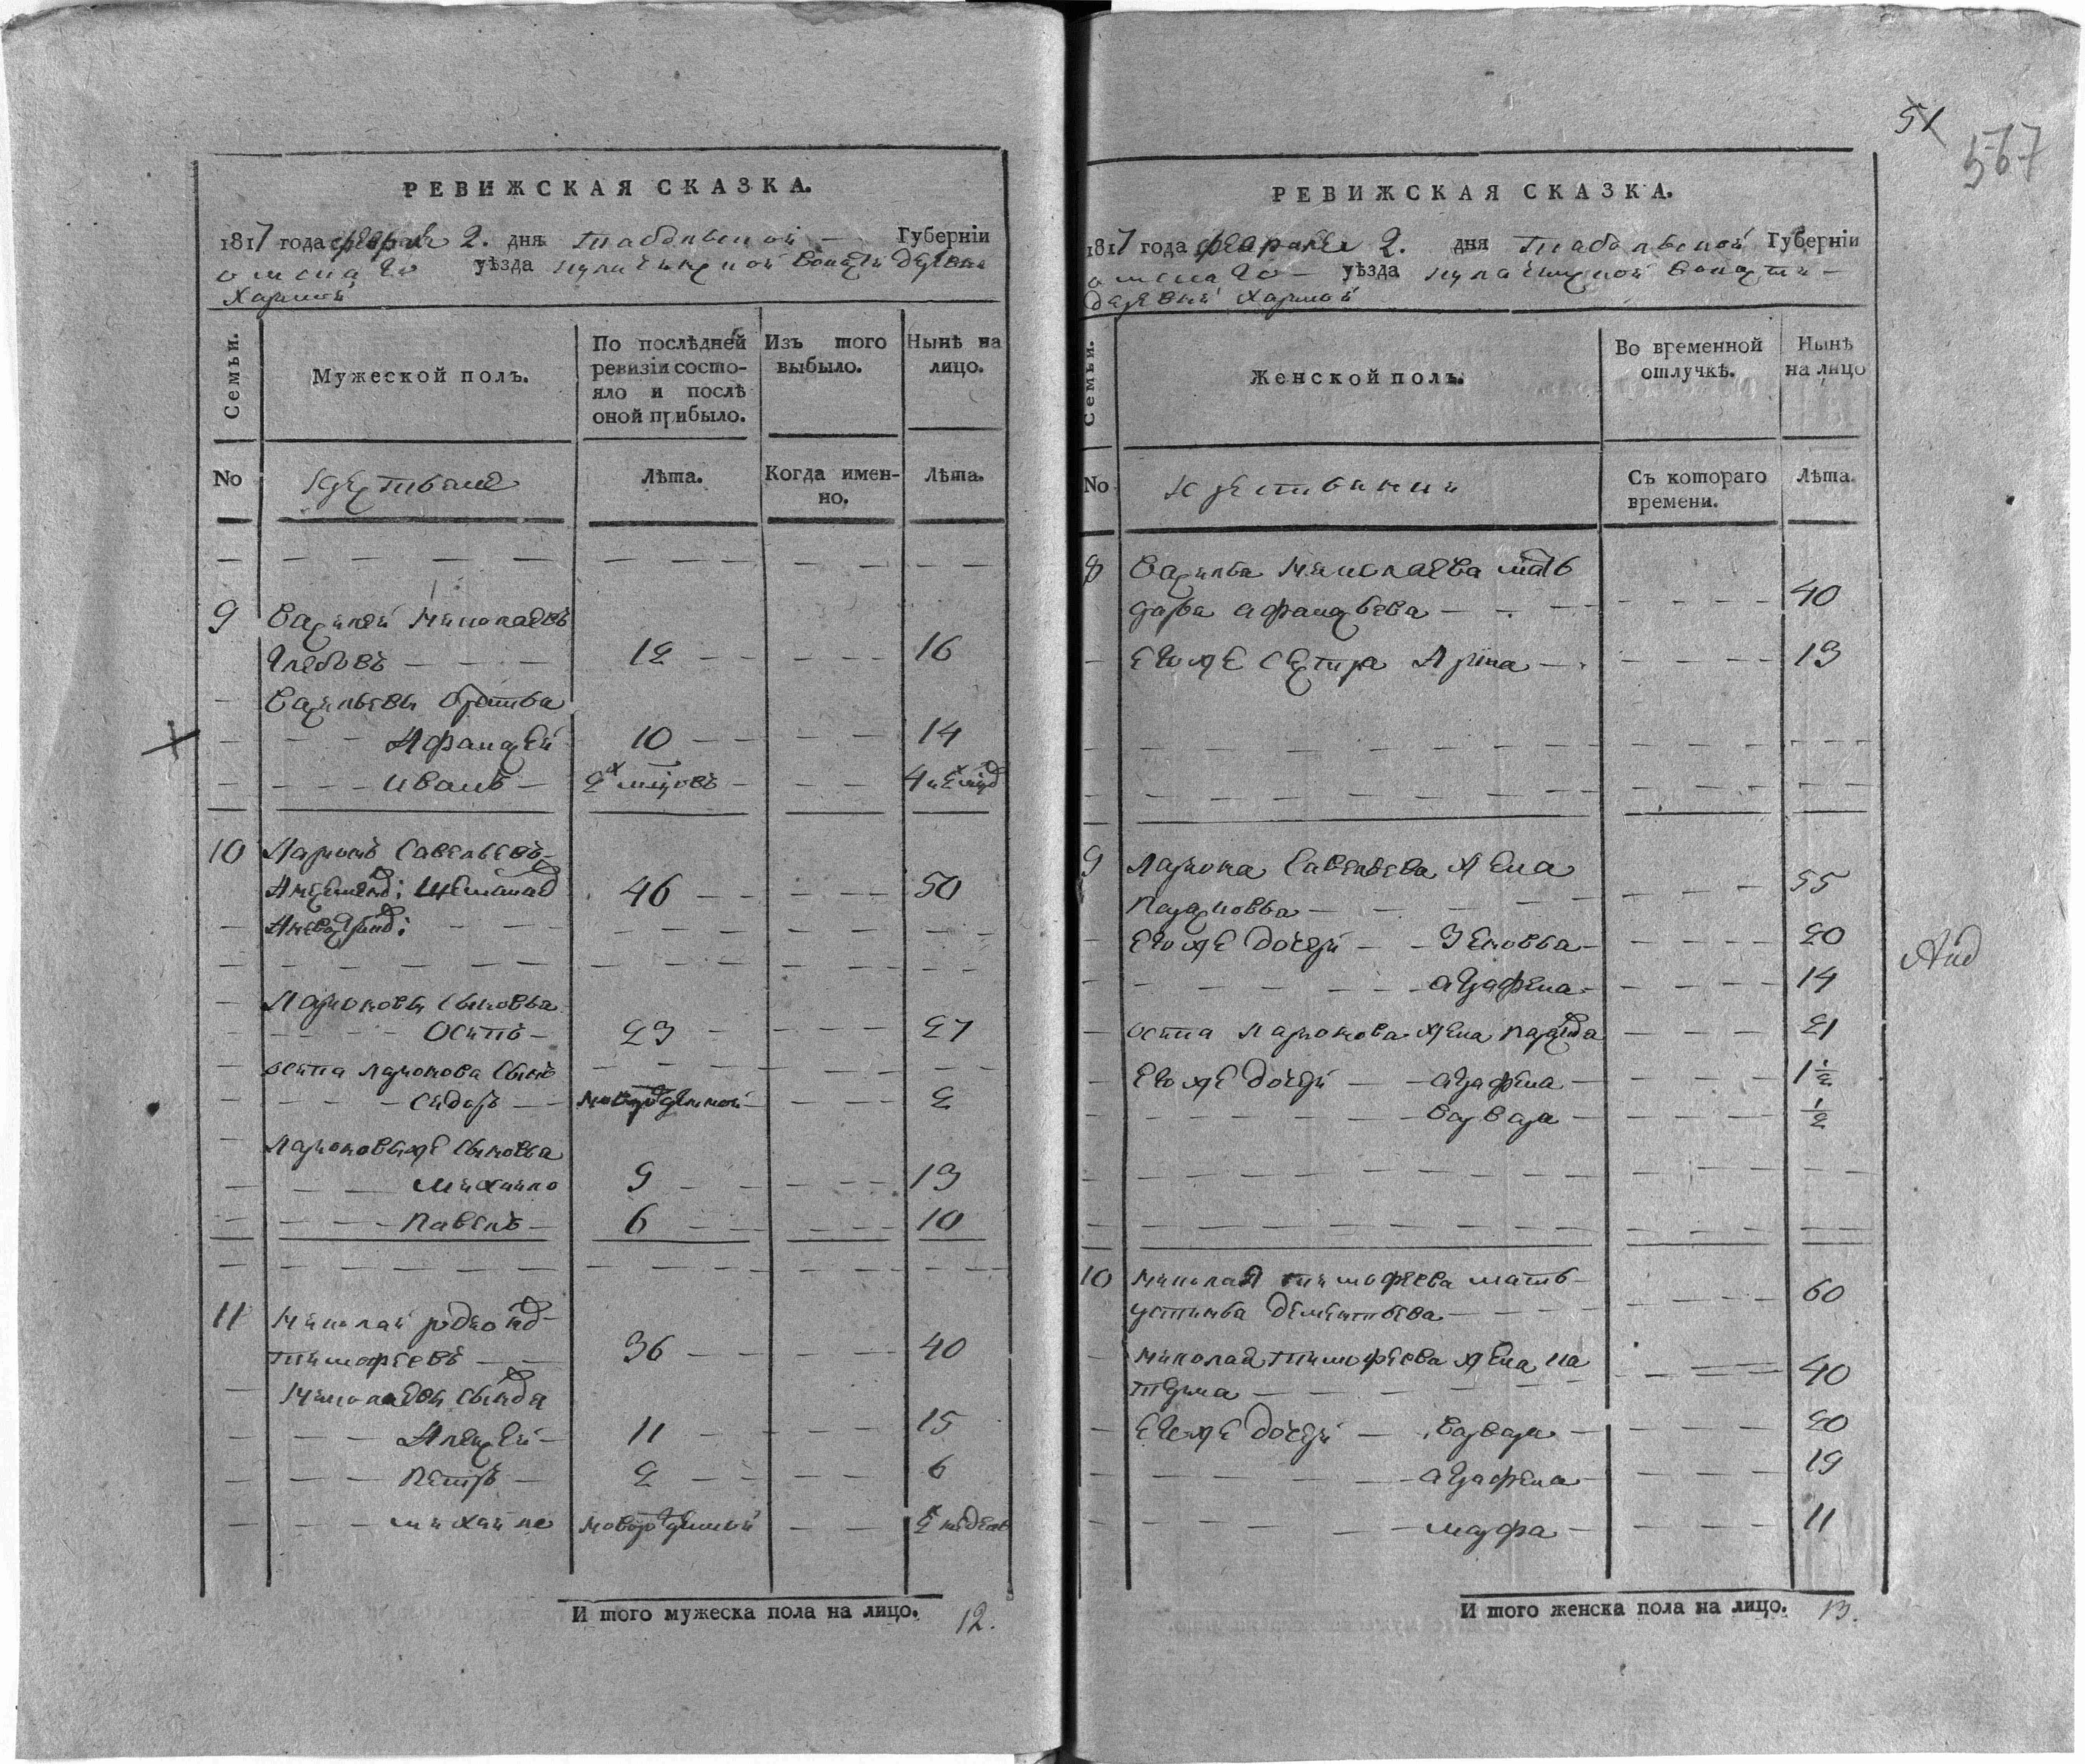 51
567
РЕВИЖСКАЯ СКАЗКА.
1817 года февраля 2. дня табольской Губерніи
омскаго уѣзда кулачинской волости деревни
Харино
Семьи.
Мужеской полъ.
По послѣдней
ревизіи состо-
яло и послѣ
оной прибыло.
Изъ того
выбыло.
Нынѣ на
лицо.
No
крестьяне
Лѣта.
Когда имен-
но.
Лѣта.
9 Василей Николаевъ
Глебовъ 12 16
Васильевы братья
Афанасей 10 14
иванъ 2х мцовъ 4 и 2х
10 Ларионъ Савельевъ
46 50
Ларионовы сыновья
Осипъ 23 27
осипа ларионова сынъ
сидоръ новорожденной 2
ларионовыже сыновья
михайло 9 13
павелъ 6 10
11 Николай родио
тимофеевъ 36 40
Алексей 11 15
петръ 2 6
михайло новорожденный 2х недель
И того мужеска пола на лицо. 12.
РЕВИЖСКАЯ СКАЗКА.
1817 года февраля 2. дня табольской Губерніи
омскаго уѣзда кулачинской волости
деревни Харино
Семьи.
Женской полъ.
Во временной
отлучкѣ.
Нынѣ
на лицо
No
крестьянки
Съ котораго
времени.
Лѣта.
8 Василья Николаева мать
дарья афанасьева 40
егоже сестра Арина 13
9 Лариона Савельева жена
55
егоже дочери Зеновья 20
агафена 14
осипа ларионова жена 21
егоже дочери агафена 1½
варвара ½
10 николая тимофеева мать
устинья дементьева 60
николая тимофеева жена на
40
егоже дочери варвара 20
агафена 19
марфа 11
И того женска пола на лицо. 13.